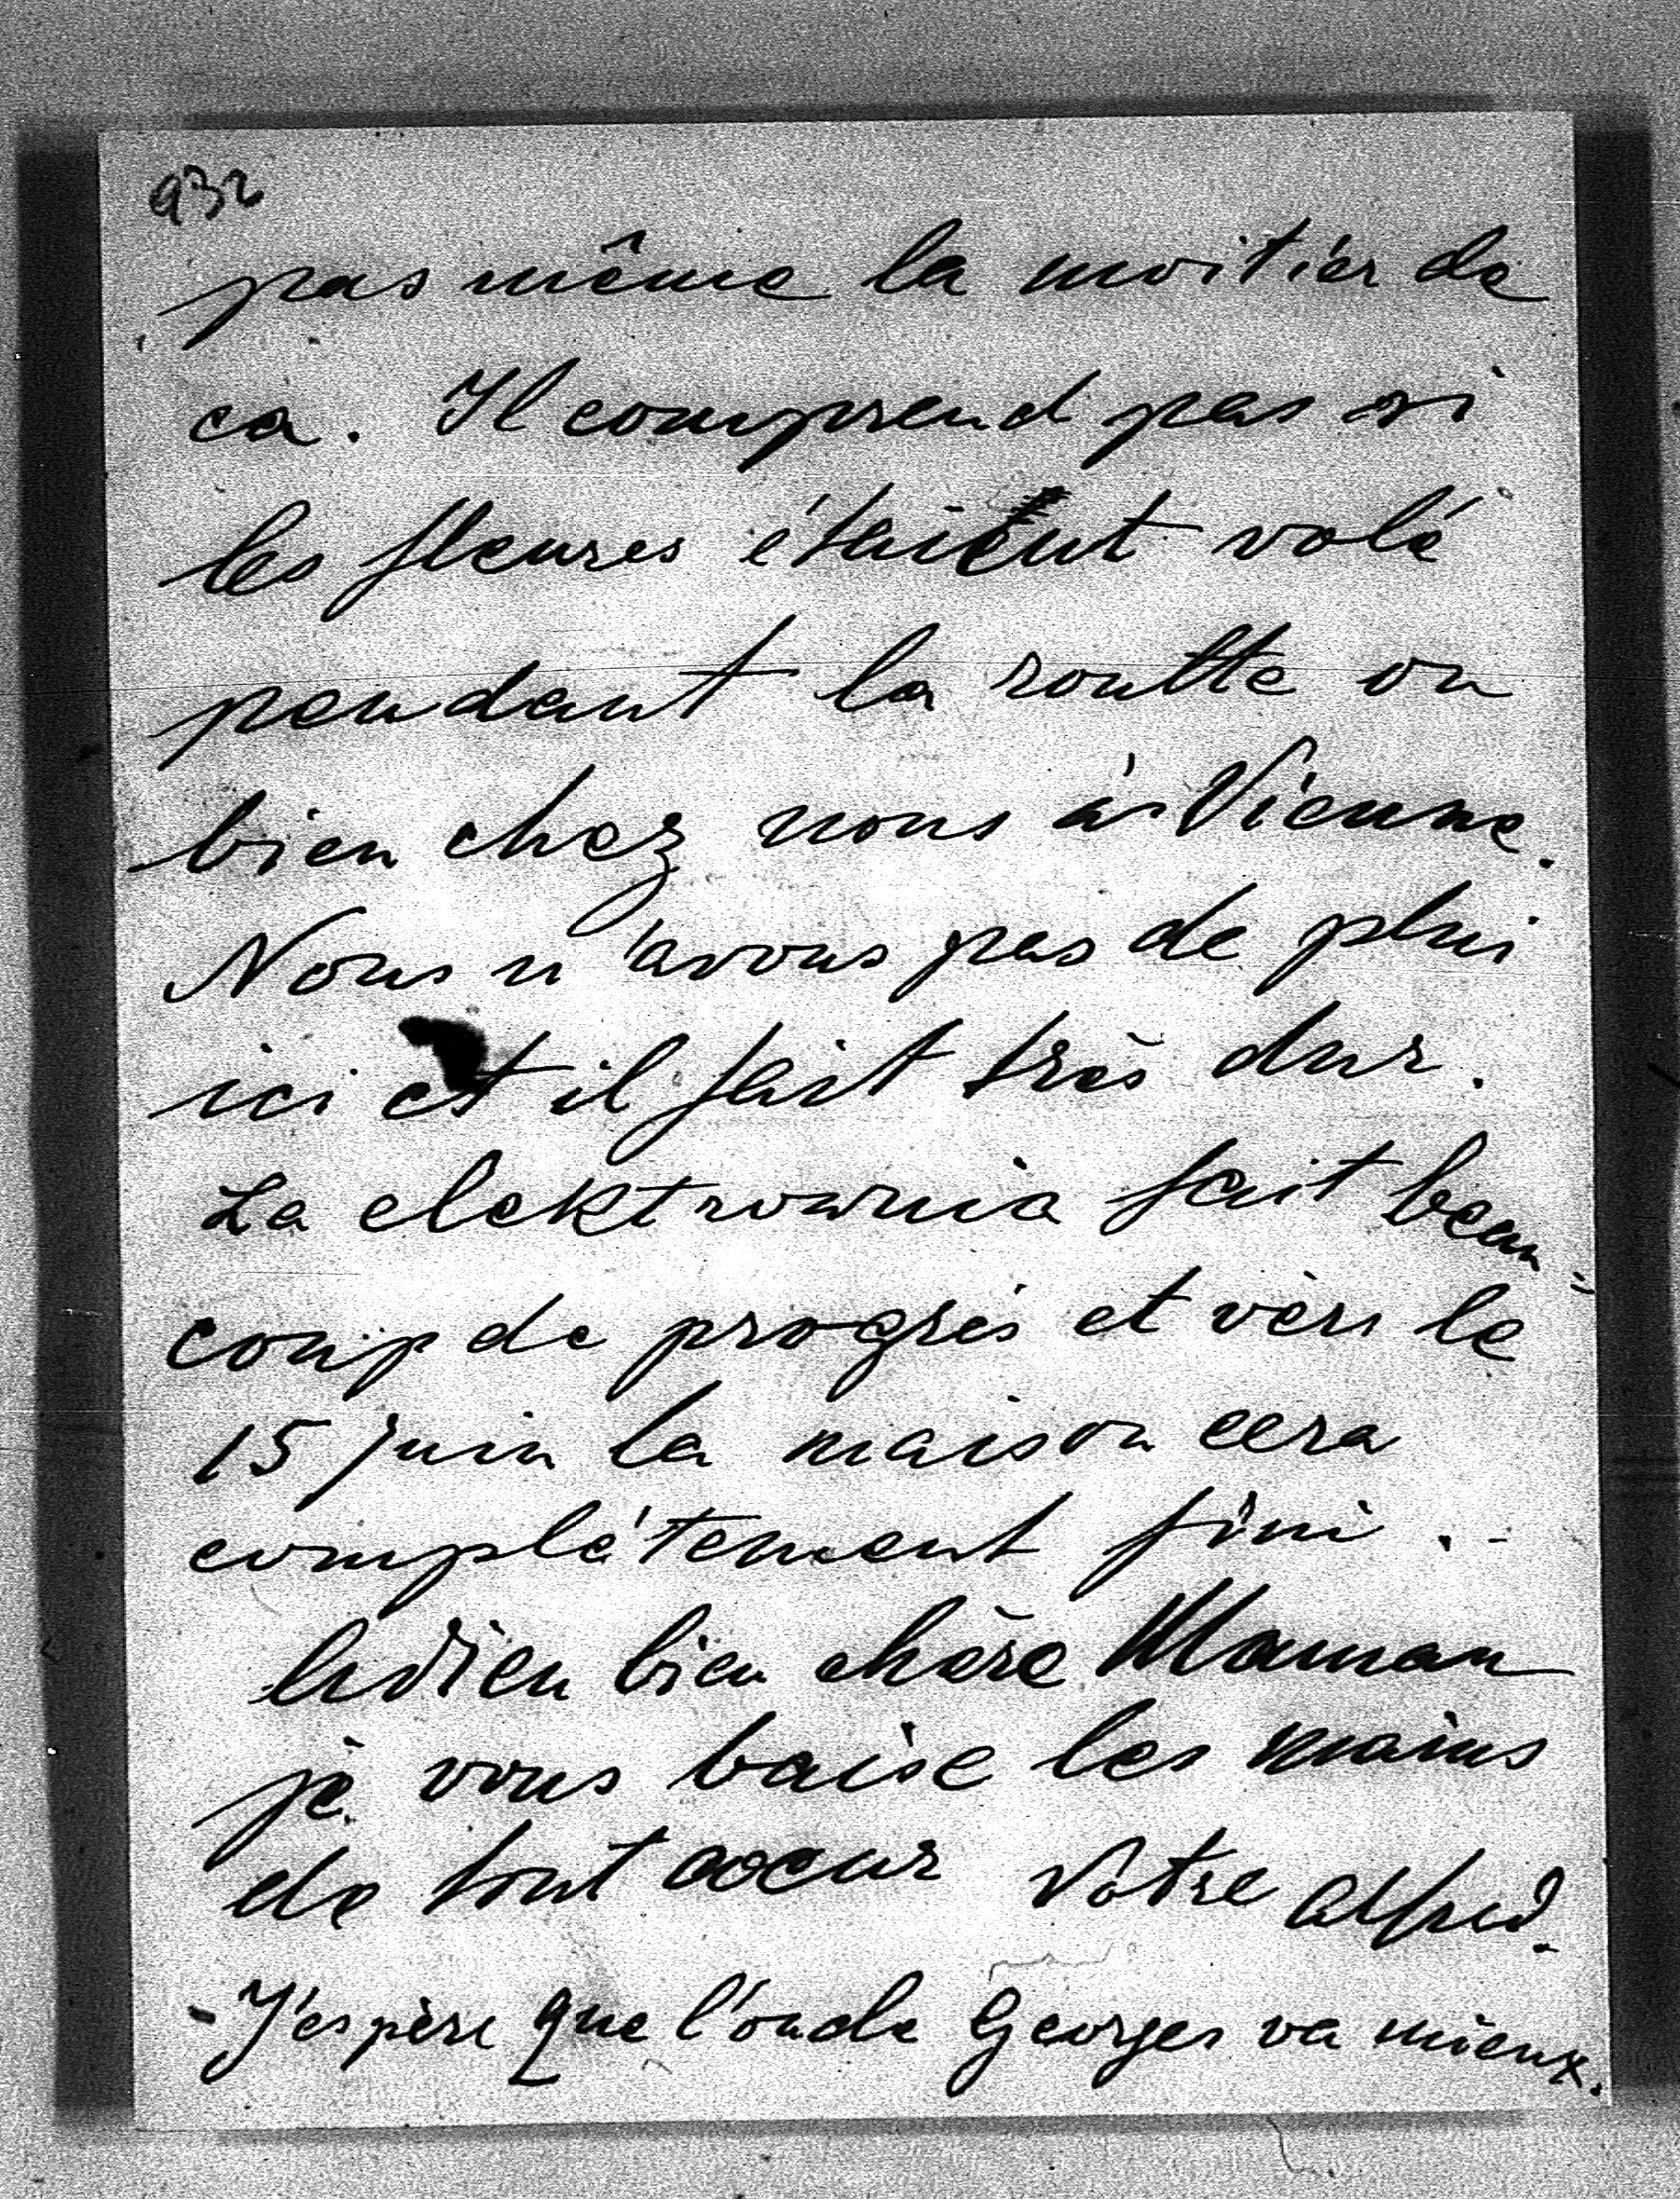 932
pas même la moitiér de
ca. Il comprend pas si
les fleures étaient volé
pendant la routte ou
bien chez nous à Vienne.
Nous n'avons pas de plui
ici et il fait très dur.
La elektrownia fait beau=
coup de progrès et vèrs le
15 juin la maison cera
complétement fini.-
Adieu bien chère Maman
je vous baise les mains
de tout coeur Votre Alfred.
- J'espère que l'oncle Georges va mieux.